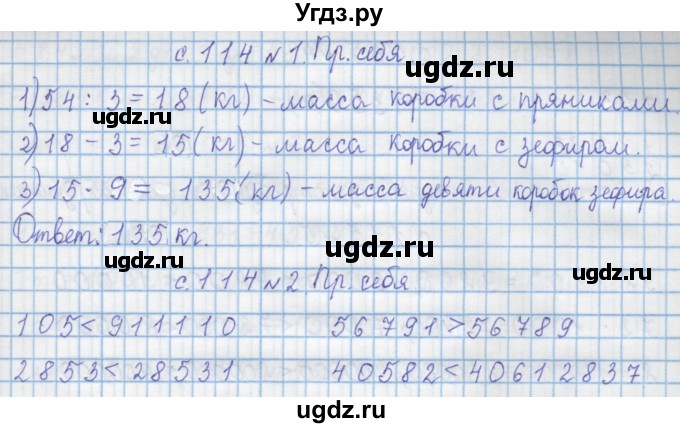 Угдз.ру
с. 114 № 1. Пр. себя
ugdz.ru
ugdz.ru
1) 54 : 3 = 18 (кг) - масса коробки с пряниками.
ugdz.ru
ugdz.ru
2) 18 - 3 = 15 (кг) - масса коробки с зефиром.
3) 15 · 9 = 135 (кг) - масса девяти коробок зефира.
Ответ: 135 кг.
ugdz.ru
ugdz.ru
ugdz.ru
с. 114 № 2. Пр. себя
105 < 911110 56791 > 56789
ugdz.ru
ugdz.ru
2853 < 28531 40582 < 40612837
ugdz.ru